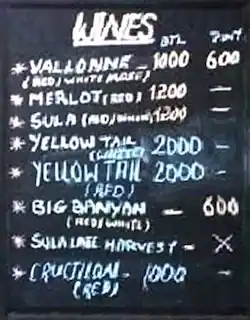 WINES
BTL PINT
* VALLONNE - 1000 600
(RED/WHITE/ROSE)
* MERLOT (RED) 1200 —
* SULA (RED/WHITE) 1200 —
* YELLOW TAIL 2000 -
(WHITE)
* YELLOW TAIL 2000 -
(RED)
* BIG BANYAN — 600
(RED/WHITE)
* SULA LATE HARVEST - X
* CRUCTILON - 1000 —
(RED)